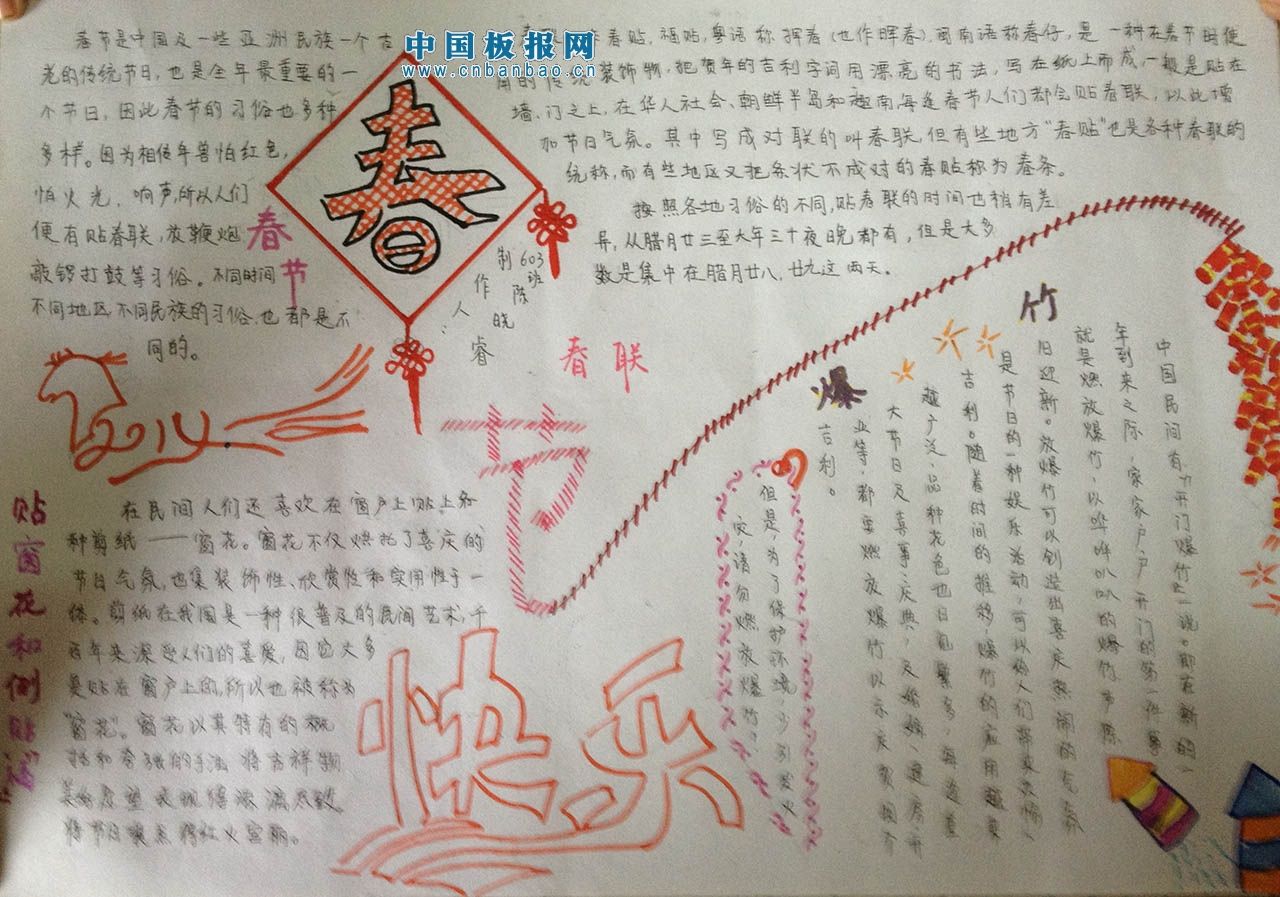 中国板报网
www.cnbanbao.cn
春节是中国及一些亚洲民族一个古
老的传统节日，也是全年最重要的一
个节日，因此春节的习俗也多种
多样。因为相传年兽怕红色，
怕火光，响声，所以人们
便有贴春联，放鞭炮
敲锣打鼓等习俗。不同时间
不同地区不同民族的习俗也都是不
同的。
春节
春
603班
陈晓睿
制作人：
春贴，福贴，粤语称挥春（也作晖春），闽南语称春仔，是一种在春节时使
用的传统装饰物，把贺年的吉利字词用漂亮的书法，写在纸上而成，一般是贴在
墙、门之上，在华人社会、朝鲜半岛和越南每逢春节人们都会贴春联，以此增
加节日气氛。其中写成对联的叫春联，但有些地方“春贴”也是各种春联的
统称，而有些地区又把条状不成对的春贴称为春条。
按照各地习俗的不同，贴春联的时间也稍有差
异，从腊月廿三至大年三十夜晚都有，但是大多
数是集中在腊月廿八、廿九这两天。
春联
2014
节
快乐
爆竹
中国民间有“开门爆竹”一说。即在新的一
年到来之际，家家户户开门的第一件事
就是燃放爆竹，以哔哔叭叭的爆竹声除
旧迎新。放爆竹可以创造出喜庆热闹的气氛
是节日的一种娱乐活动，可以给人们带来欢愉
吉利。随着时间的推移，爆竹的应用越来
越广泛，品种花色也日见繁多，每逢重
大节日及喜事庆典，及婚嫁、建房、开
业等，都要燃放爆竹以示庆贺
吉利。
但是，为了保护环境，少引发火
灾，请勿燃放爆竹！
贴窗花和倒贴“
在民间人们还喜欢在窗户上贴上各
种剪纸——窗花。窗花不仅烘托了喜庆的
节日气氛，也集装饰性、欣赏性和实用性于一
体。剪纸在我国是一种很普及的民间艺术，千
百年来深受人们的喜爱，因它大多
是贴在窗户上的，所以也被称为
“窗花”。窗花以其特有的概
括和夸张的手法将吉祥物
美好愿望表现得淋漓尽致，
将节日装点得红火富丽。